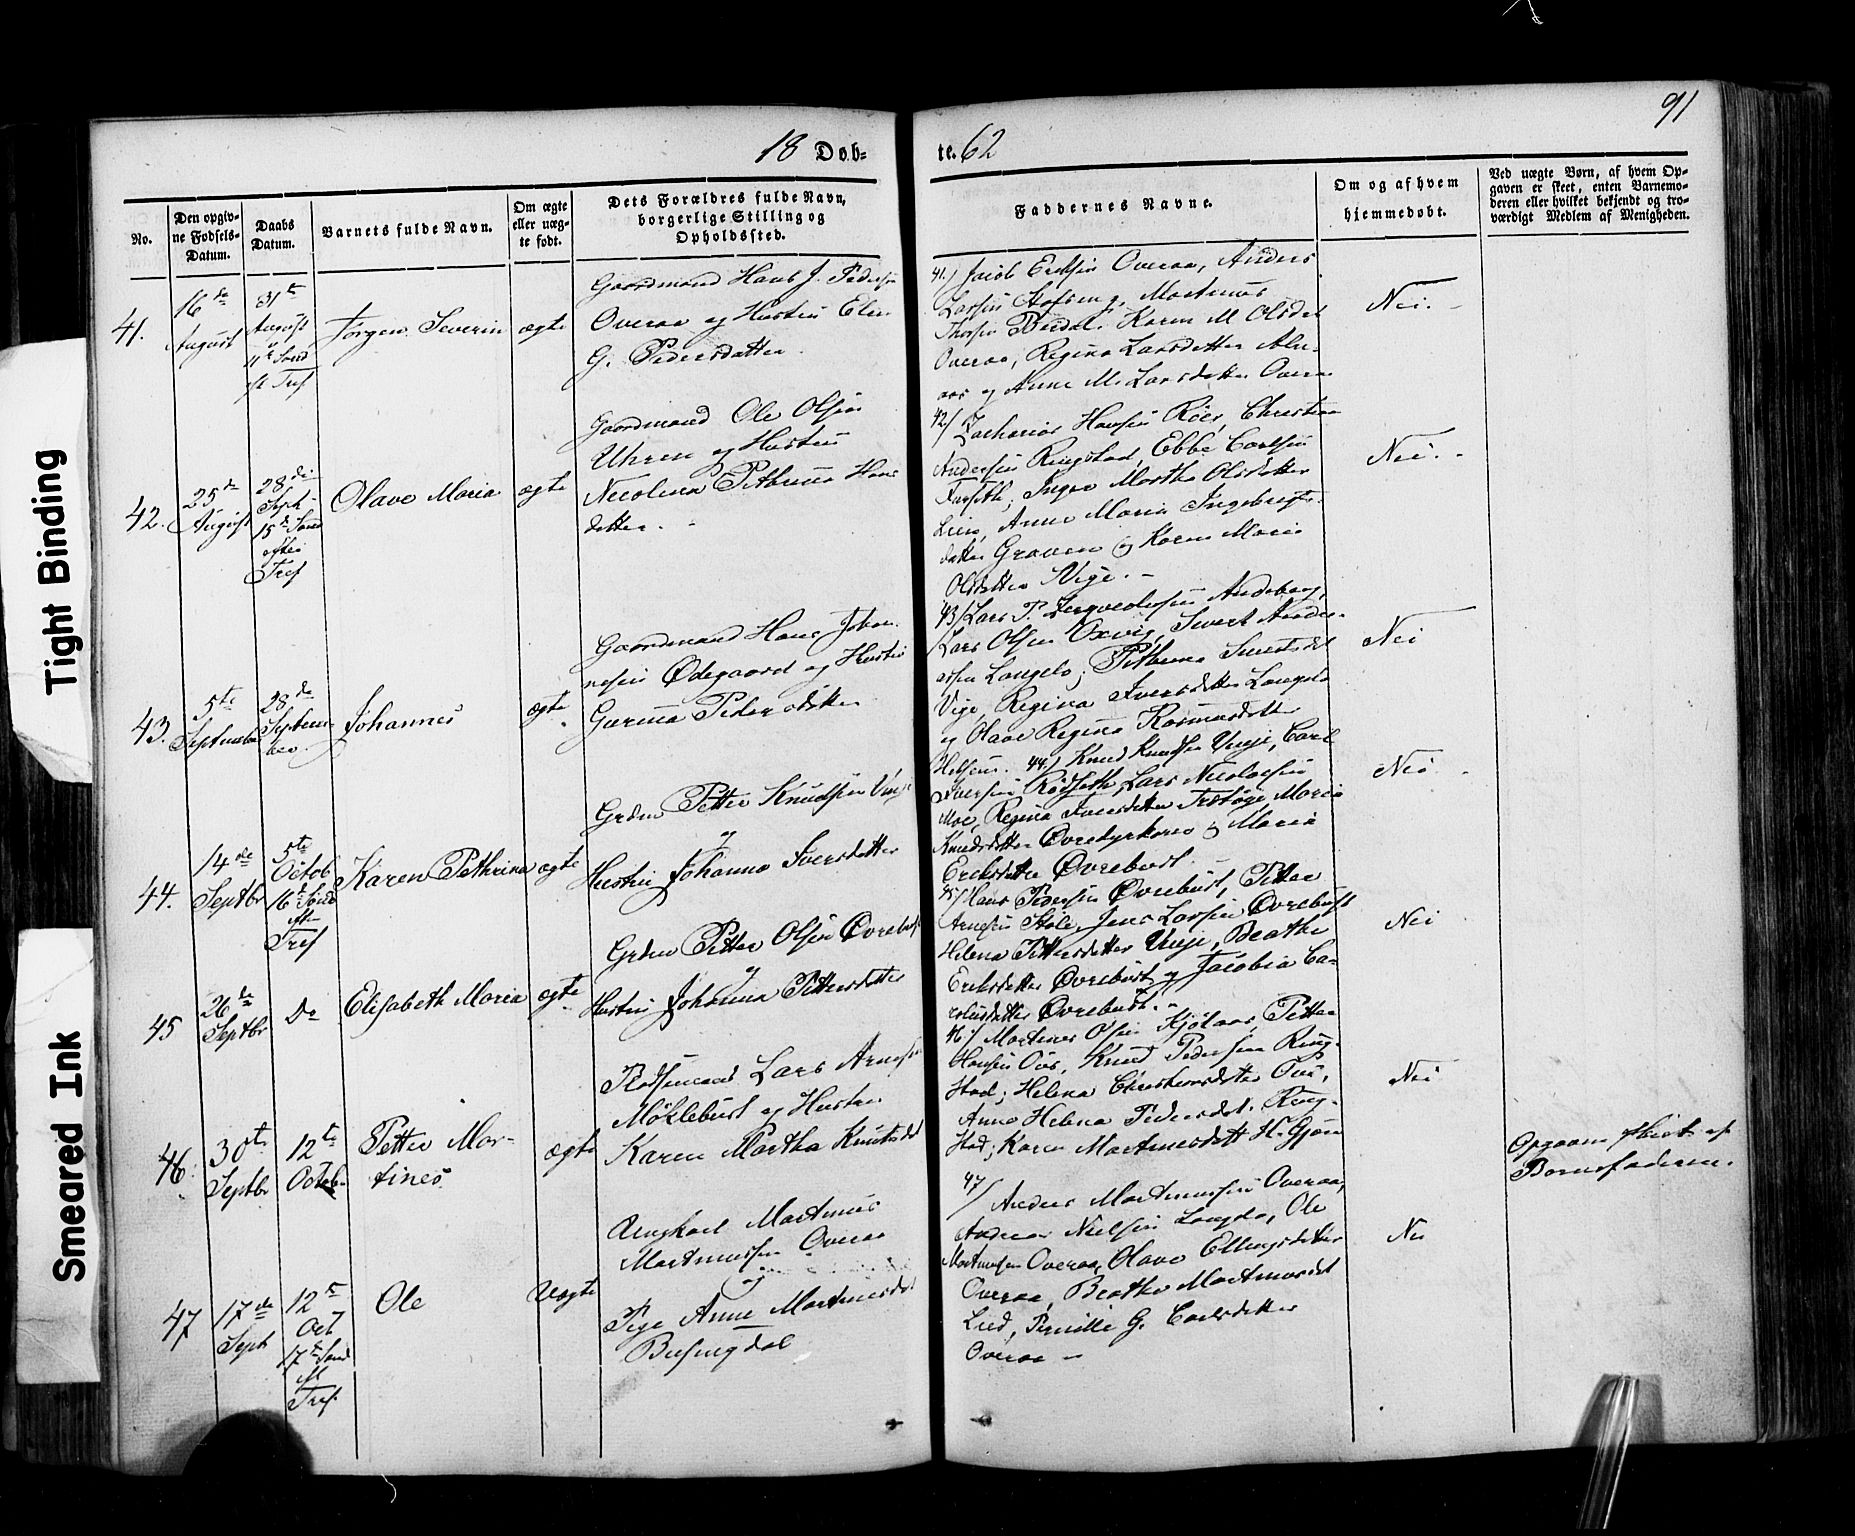 91
18 Døb-
te. 62
No.
Den opgiv-
ne Fødsels-
Datum.
Daabs
Datum.
Barnets fulde Navn.
Om ægte
eller uæg-
te født.
Dets Forældres fulde Navn,
borgerlige Stilling og
Opholdssted.
Faddernes Navne.
Om og af hvem
hjemmedøbt.
Ved uægte Børn, af hvem Op-
gaven er skeet, enten Barnemo-
deren eller hvilket bekjendt og tro-
værdigt Medlem af Menigheden.
41.
16de
August
31te
August
11te Sønd
ef Tref
Jørgen Severin
ægte
Gaardmand Hans J. Pedersen
Overaa og Hustru Elen
G. Pedersdatter.
41/ Jacob Eriksen Overaa, Anders
Larsen, Martinus
Thorsen, Karen M. Olsdat
Overaa, Regina Larsdatter
og Anne M. Larsdatter Overaa
Nei.
42.
25de
August
28de
Septr
15de Sønd
efter
Tref
Olave Maria
ægte
Gaardmand Ole Olsen
Uhren og Hustru
Nicolina Pethrina Hans
datter.
42/ Zacharias Hansen Røer, Christian
Andersen Ringstad, Ebbe Carlsen
Farseth, Inger Martha Olsdatter
Lien, Anne Maria Ingebrigts-
datter Graven og Karen Maria
Olsdatter Vige.
Nei.
43.
5te
September
28de
Septem-
ber.
Johannes
ægte
Gaardmand Hans Johan-
nesen Ødegaard og Hustru
Gurina Pedersdatter
43/ Lars P. Andeberg,
Lars Olsen Oxvig, Sivert Ander-
sen Langelo, Pethrina Sivertsdat
Vige, Regina Iversdatter Langelo
og Olave Regina Rasmusdatter
Helsem. 44/ Knud Knudsen Vinje, Carl
Nei
44.
14de
Septbr
5te
Octob
16de Sønd
efter
Tref
Karen Pethrina
ægte
Grdm Petter Knudsen Vinje
og
Hustru Johanna Iversdatter
Iversen Rødseth, Lars Nicolaisen
Moe, Regina Iversdatter, Maria
Knudsdatter og Maria
Eriksdatter Øvrebust.
Nei
45
26de
Septbr
Do
Elisabeth Maria
ægte
Grdm Petter Olsen Øvrebust
og
Hustru Johanna Pettersdatter
45/ Hans Pedersen Øvrebust, Petter
Arnesen Hole, Jens Larsen Øvrebust
Helena Pettersdatter Vinje, Beathe
Eriksdatter Øvrebust og Jacobia Ca-
rolusdatter Øvrebust.
Nei
46.
30te
Septbr
12te
Octob
Petter Mar-
tines
ægte
Pladsmand Lars Arnesen
Møklebust og Hustru
Karen Martha Knutsdat
46/ Martines Olsen Kjølaas, Petter
Hansen Ous, Knud Pedersen Ring-
stad; Helena Christiansdatter Ous,
Anne Helena Pedersdat. Ring-
stad; Karen Martinesdatt H. Gjøen
Nei
47
17de
Septr
12te
Oct
17de Sønd
ef
Tref
Ole
Uægte
Ungkarl Martinus
Martinussen Overaa
og
Pige Anne Martinusdat
Busengdal
47/ Anders Martinussen Overaa,
Andreas Nielsen Langelo, Ole
Martinussen Overaa, Olave Ellingsdatter
Overaa, Beathe Martinusdat
Lied, Pernille G. Carlsdatter
Overaa
Nei
Opgaven skeet af
Barnefaderen.
Tight Binding
Smeared Ink